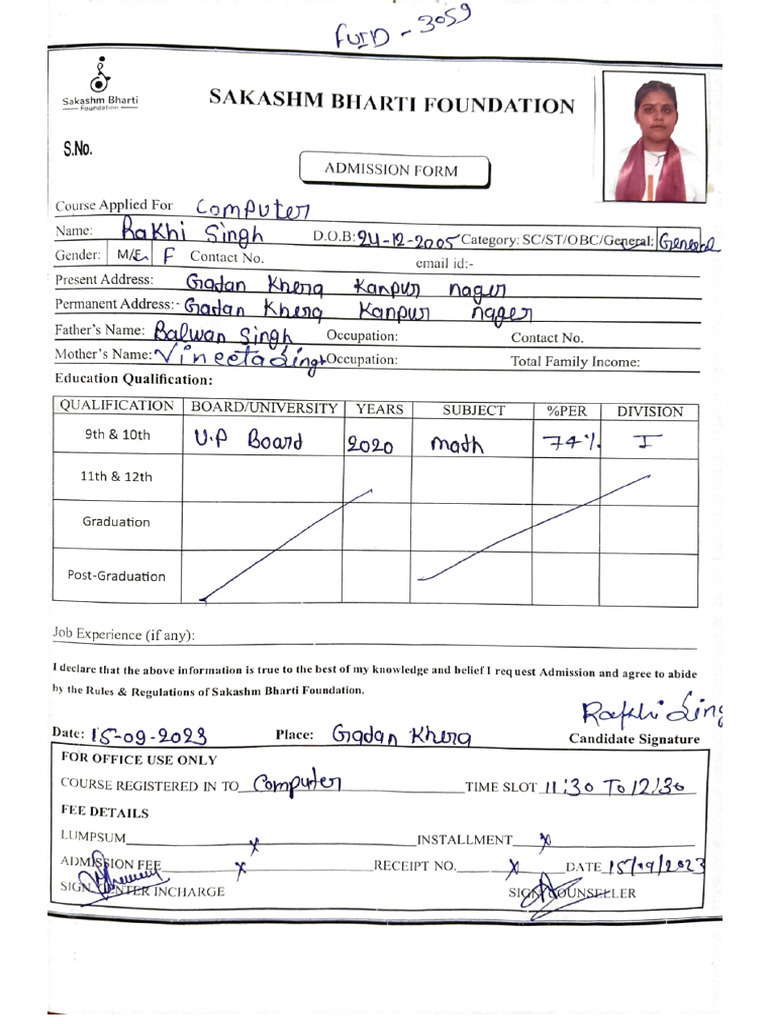 FUID - 3059
Sakashm Bharti
Foundation
SAKASHM BHARTI FOUNDATION
S.No.
ADMISSION FORM
Course Applied For Computer
Name: Rakhi Singh D.O.B: 24-12-2005 Category: SC/ST/OBC/General: General
Gender: M/F F Contact No. email id:-
Present Address: Gadan Khera Kanpur nager
Permanent Address:- Gadan Khera Kanpur nager
Father's Name: Balwan Singh Occupation: Contact No.
Mother's Name: Vineeta Singh Occupation: Total Family Income:
Education Qualification:
QUALIFICATION BOARD/UNIVERSITY YEARS SUBJECT %PER DIVISION
9th & 10th U.P Board 2020 math 74% I
11th & 12th
Graduation
Post-Graduation
Job Experience (if any):
I declare that the above information is true to the best of my knowledge and belief I request Admission and agree to abide
by the Rules & Regulations of Sakashm Bharti Foundation.
Rakhi Sing
Date: 15-09-2023 Place: Gadan Khera Candidate Signature
FOR OFFICE USE ONLY
COURSE REGISTERED IN TO Computer TIME SLOT 11:30 To 12:30
FEE DETAILS
LUMPSUM x INSTALLMENT x
ADMISSION FEE x RECEIPT NO. x DATE 15/09/2023
SIGN CENTER INCHARGE SIGN COUNSELLER